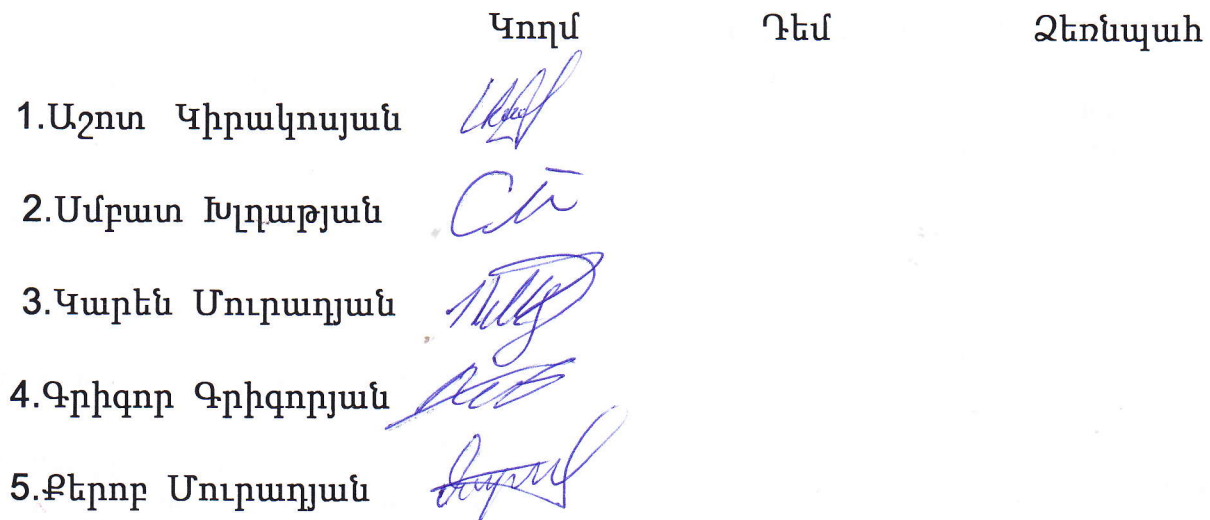 Կողմ Դեմ Ձեռնպահ
1.Աշոտ Կիրակոսյան
2.Սմբատ Խլղաթյան
3.Կարեն Մուրադյան
4.Գրիգոր Գրիգորյան
5.Քերոբ Մուրադյան